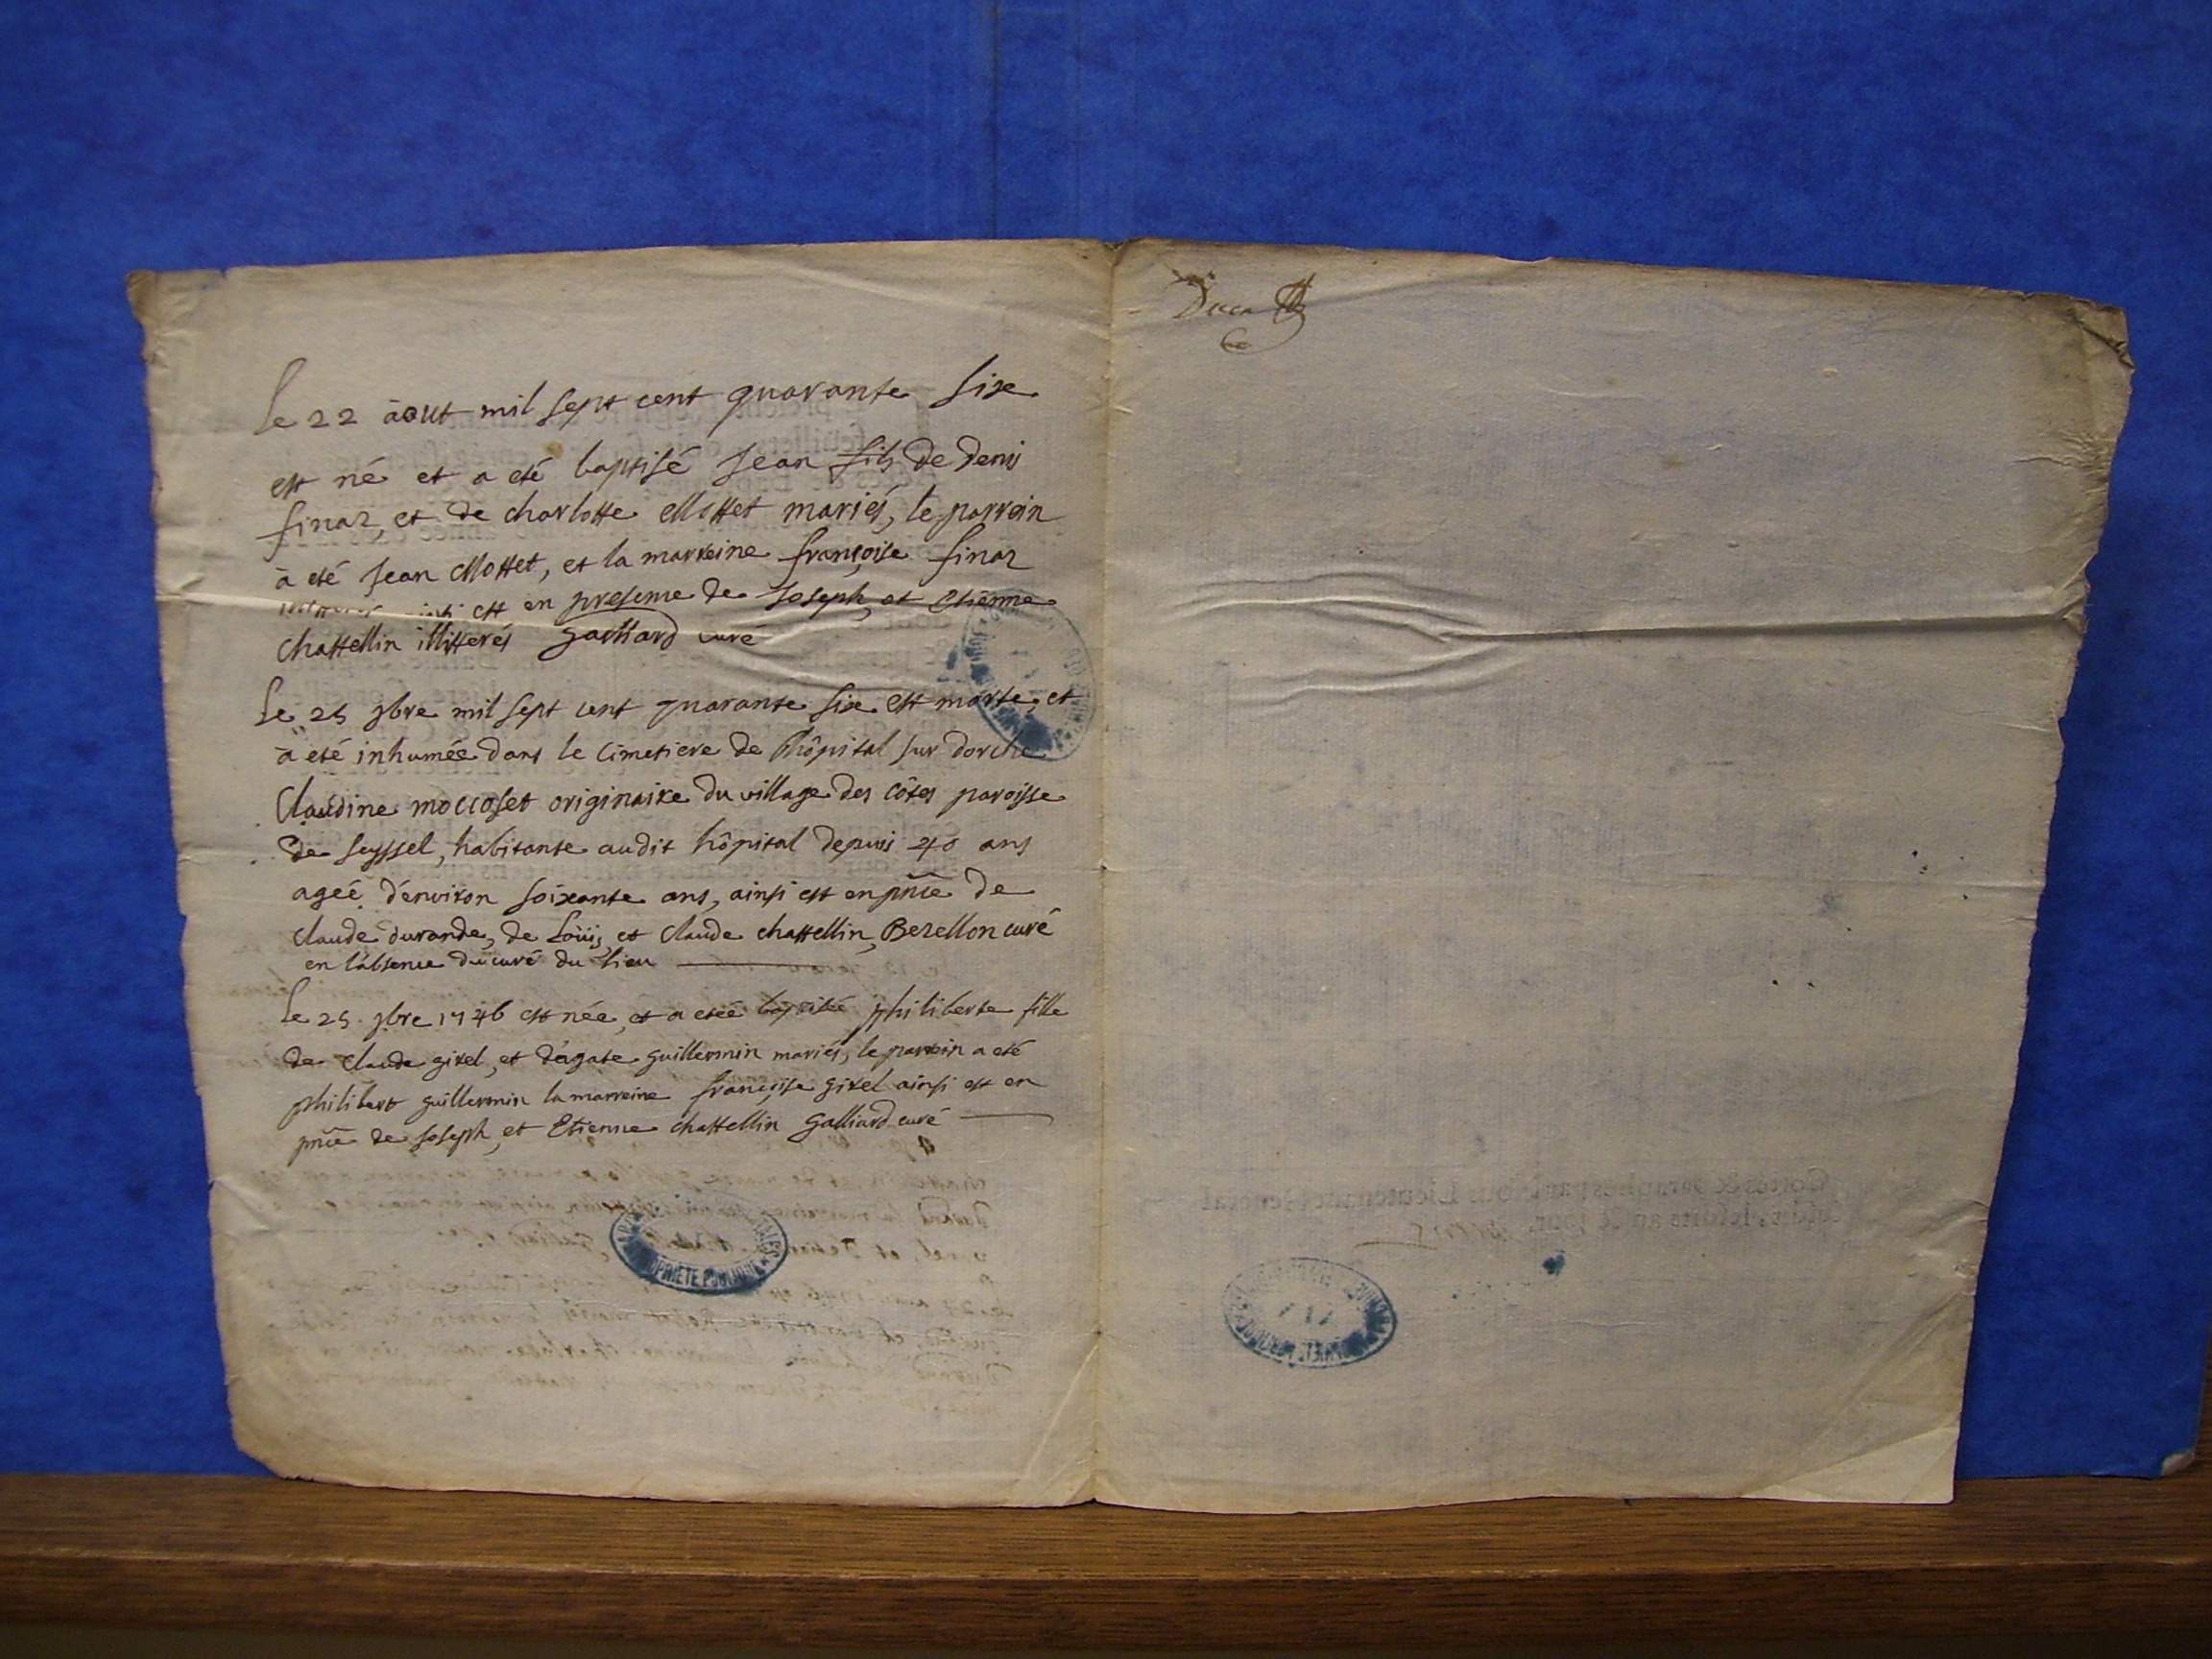 Le 22 àout mil sept cent quarante six
est né et a eté baptisé Jean fils de denis
finaz, et de charlotte Mottet mariés, le parrein
à eté Jean Mottet, et la marreine françoise finaz
est en presence de Joseph, et etienne
chattellin illitterés galliard curé
Le 25 9bre mil sept cent quarante six est morte, et
à eté inhumée dans le cimetiere de l'hôpital sur dorche
Claudine moccoset originaire du village des côtes paroisse
de seyssel, habitante audit hôpital depuis 40 ans
ageé d'environ soixante ans, ainsi est en pnce de
claude durande, de Loüis et claude chattellin, Berellon curé
en l'absence du curé du lieu
Le 25 9bre 1746 est née, et a eteé baptisée philiberte fille
de claude girel, et d'agate guillermin mariés, le parrein a eté
philibert guillermin la marreine françoise girel ainsi est en
pnce de Joseph, et Etienne chattellin galliard curé
PROPRIETE PUBLIQUE